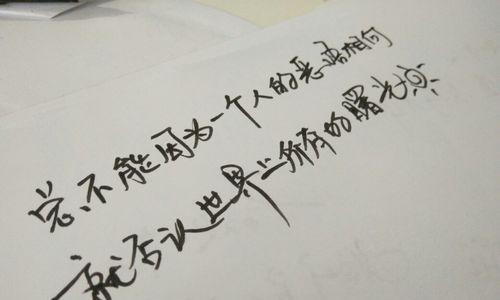 总不能因为一个人的恶语相向
就否认世界上所有的曙光